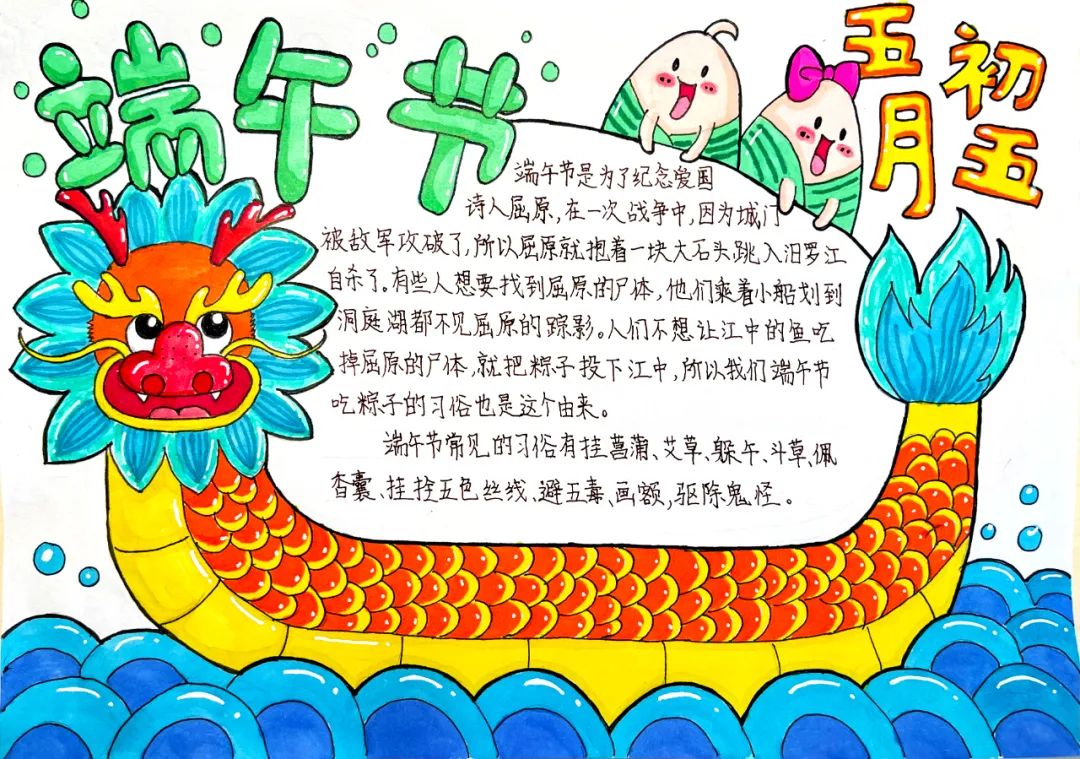 端午节
五月
初五
端午节是为了纪念爱国
诗人屈原,在一次战争中,因为城门
被敌军攻破了,所以屈原就抱着一块大石头跳入汨罗江
自杀了。有些人想要找到屈原的尸体,他们乘着小船划到
洞庭湖都不见屈原的踪影。人们不想让江中的鱼吃
掉屈原的尸体,就把粽子投下江中,所以我们端午节
吃粽子的习俗也是这个由来。
端午节常见的习俗有挂菖蒲、艾草、躲午、斗草、佩
香囊、挂拴五色丝线、避五毒、画额,驱除鬼怪。